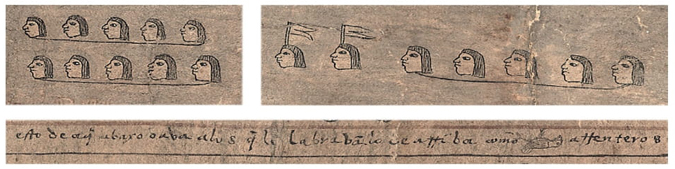 esto de aqi abaxo dava a los q̃ le labrabã la ce atti ba como attenteros